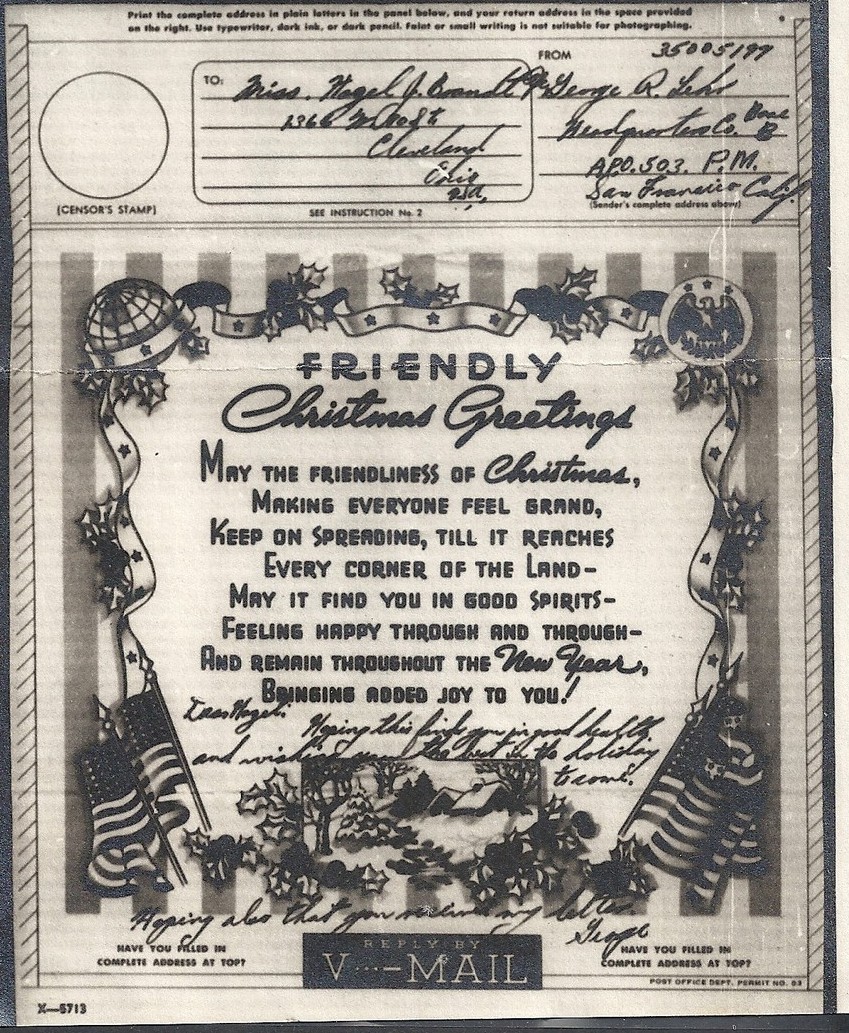 Print the complete address in plain letters in the panel below, and your return address in the space provided
on the right. Use typewriter, dark ink, or dark pencil. Faint or small writing is not suitable for photographing.
FROM
35005199
TO:
Miss. Hazel J. Brandt
George R. Lehr
Cleveland
Headquarters Co. Base B
Ohio
APO. 503. P.M.
San Francisco Calif.
(CENSOR'S STAMP)
SEE INSTRUCTION No. 2
(Sender's complete address above)
FRIENDLY
Christmas Greetings
MAY THE FRIENDLINESS OF Christmas,
MAKING EVERYONE FEEL GRAND,
KEEP ON SPREADING, TILL IT REACHES
EVERY CORNER OF THE LAND-
MAY IT FIND YOU IN GOOD SPIRITS-
FEELING HAPPY THROUGH AND THROUGH-
AND REMAIN THROUGHOUT THE New Year,
BRINGING ADDED JOY TO YOU!
Dear Hazel:
Hoping this finds you in good health
and wishing you the best in the holiday
to come.
Hoping also that you received my letter.
George
HAVE YOU FILLED IN
COMPLETE ADDRESS AT TOP?
REPLY BY
V···—MAIL
HAVE YOU FILLED IN
COMPLETE ADDRESS AT TOP?
POST OFFICE DEPT. PERMIT NO. 83
X—5713